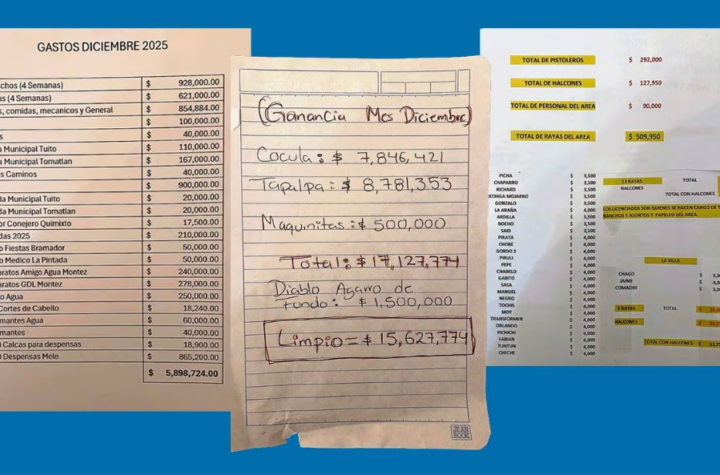 GASTOS DICIEMBRE 2025
chos (4 Semanas) $ 928,000.00
as (4 Semanas) $ 621,000.00
s, comidas, mecanicos y General $ 854,884.00
$ 100,000.00
s $ 40,000.00
a Municipal Tuito $ 110,000.00
a Municipal Tomatlan $ 167,000.00
s Caminos $ 40,000.00
$ 900,000.00
da Municipal Tuito $ 20,000.00
da Municipal Tomatlan $ 20,000.00
or Conejero Quimixto $ 17,500.00
das 2025 $ 210,000.00
o Fiestas Bramador $ 50,000.00
o Medico La Pintada $ 50,000.00
aratos Amigo Agua Montez $ 240,000.00
aratos GDL Montez $ 278,000.00
o Agua $ 250,000.00
Cortes de Cabello $ 18,240.00
mantes Agua $ 60,000.00
mantes $ 40,000.00
0 Calcas para despensas $ 18,900.00
0 Despensas Melo $ 865,200.00
$ 5,898,724.00
(Ganancia Mes Diciembre)
Cocula: $ 7,846,421
Tapalpa: $ 8,781,353
Maquinitas: $ 500,000
Total: $ 17,127,774
Diablo Agarro de
fondo: $ 1,500,000
Limpio = $ 15,627,774
JEAN BOOK
TOTAL DE PISTOLEROS $ 292,000
TOTAL DE HALCONES $ 127,950
TOTAL DE PERSONAL DEL AREA $ 90,000
TOTAL DE RAYAS DEL AREA $ 509,950
PICHA $ 3,500
CHAPARRO $ 3,500
RICHARD $ 3,500
GONZALO $ 3,500
LA ARAÑA $ 4,000
ARDILLA $ 3,500
BOCHO $ 3,500
SAID $ 3,500
PIRATA $ 4,000
CHORE $ 4,000
GORDO 2 $ 4,000
PIRULI $ 4,000
PEPE $ 4,000
CHABELO $ 4,000
GABITO $ 4,000
SASA $ 4,000
MANUEL $ 4,000
NEGRO $ 4,000
TOCHIS $ 4,000
MOY $ 4,000
TRANSFORMER $ 4,000
ORLANDO $ 4,000
PICHICHI $ 4,000
FABIAN $ 4,000
TUNTUN $ 4,000
CHECHE $ 4,000
13 RAYAS TOTAL
HALCONES
TOTAL CON HALCONES
LA VILLA
CHAGO $
JAIME $
COMADRE $
3 RAYAS TOTAL $
HALCONES $
TOTAL CON HALCONES $